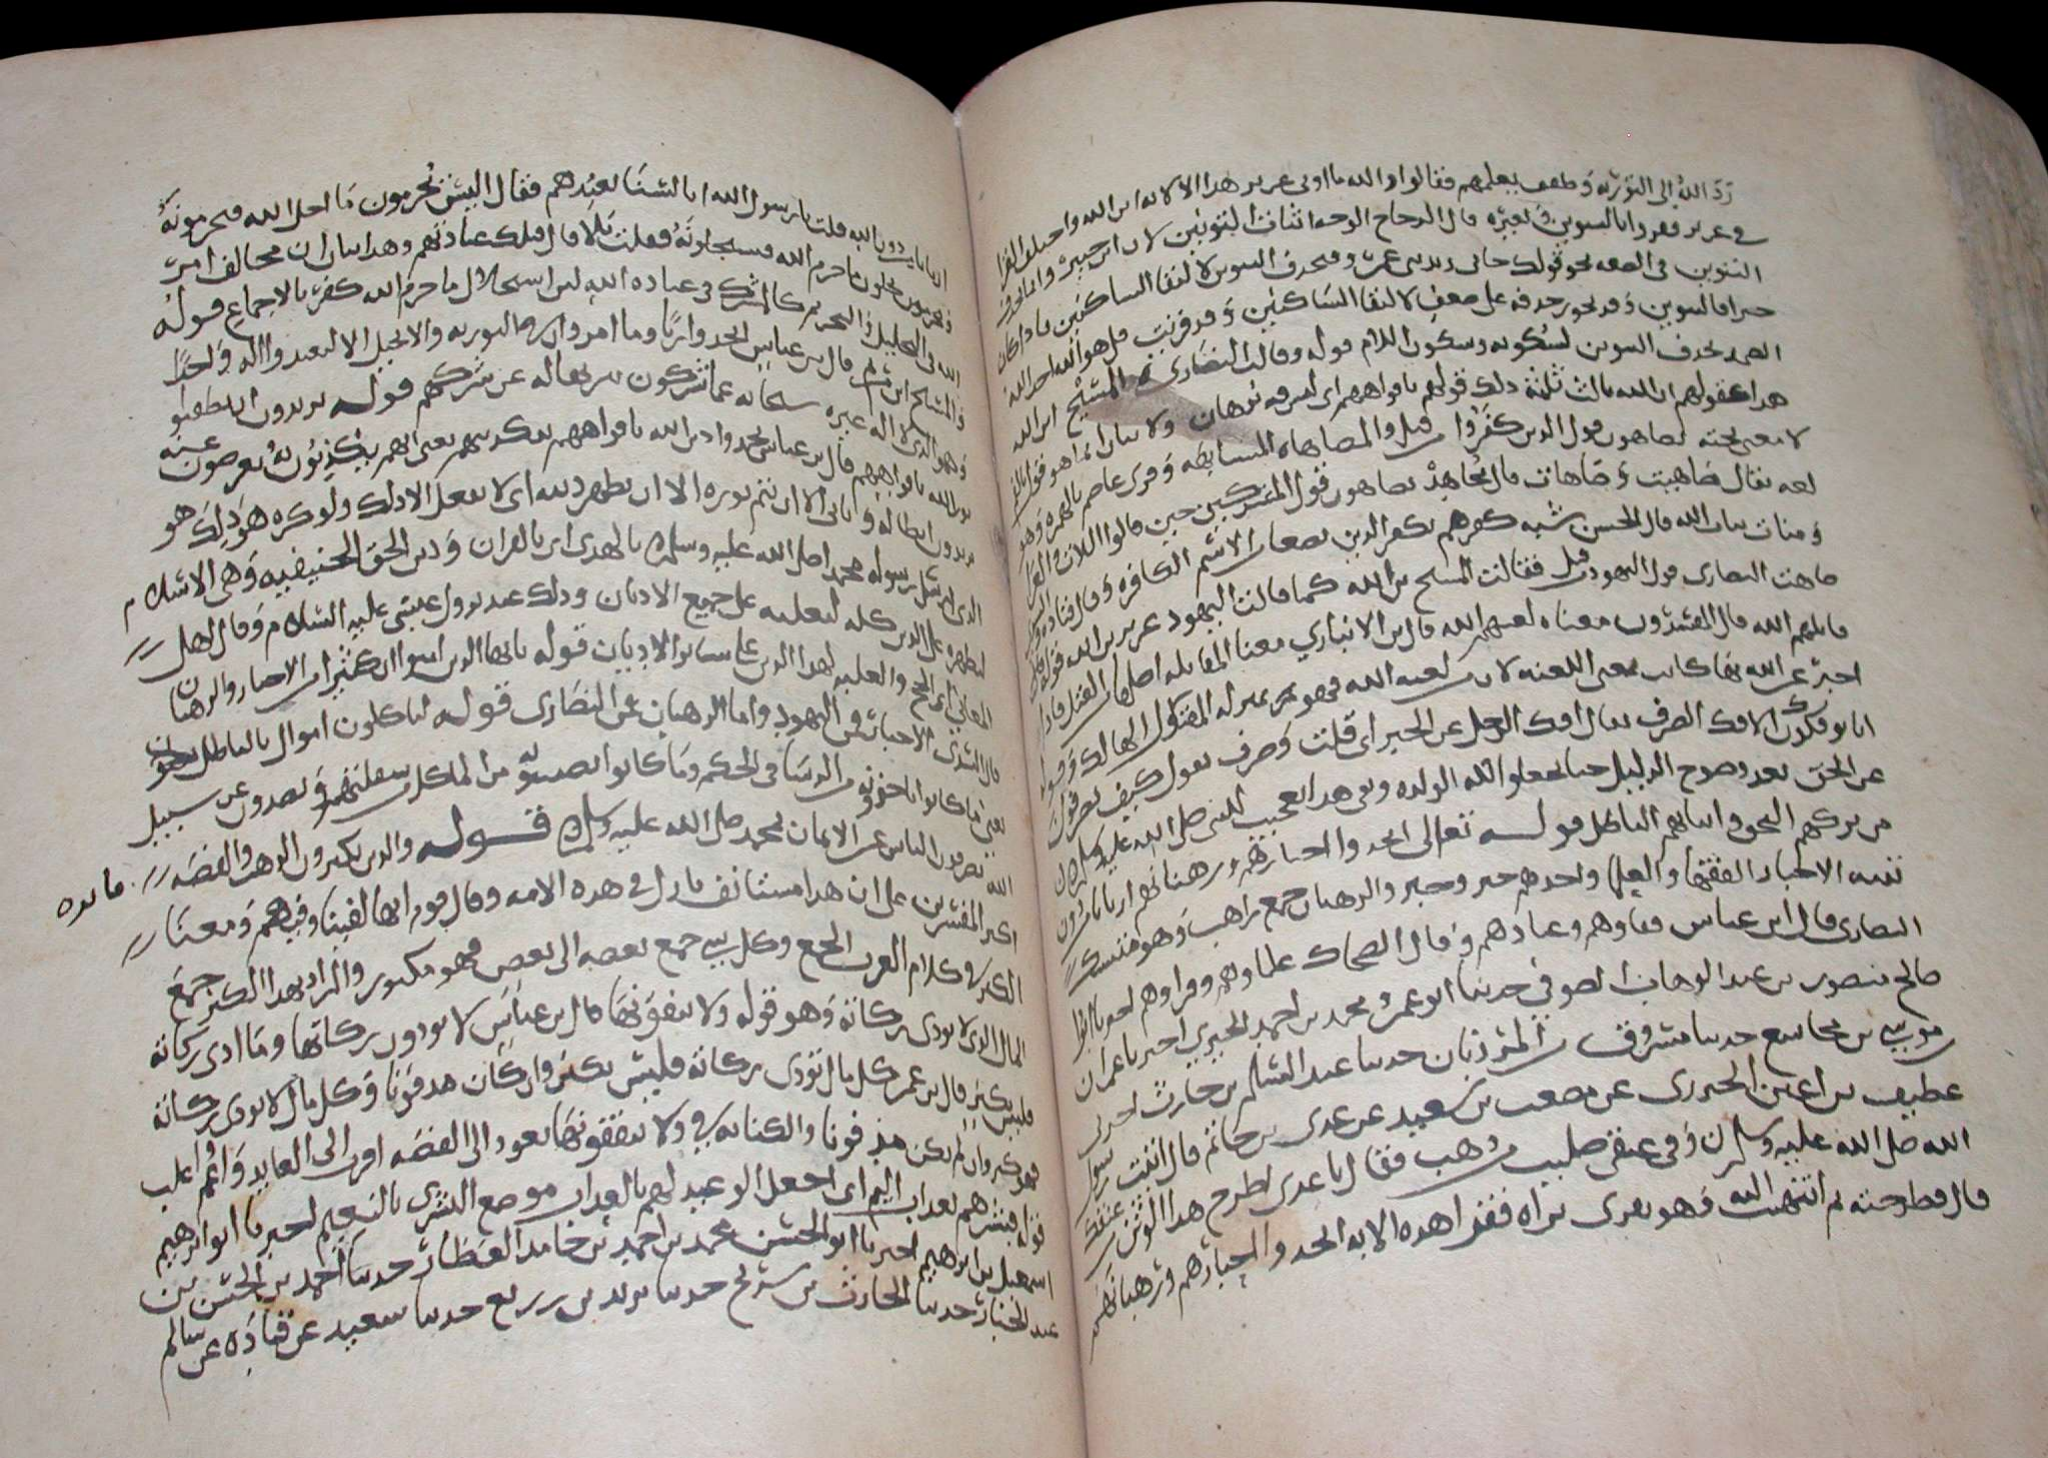 رد الله الى التوريه وطفق يعلمهم فقالوا والله ما اوتى عزير هذا الا لانه ابن الله واختلف القرا
في عزير فقروا بالتنوين وبغيره قال الزجاج الوجه اثبات التنوين لان ابن خبر وانما يحذف
التنوين في الصفه نحو قولك جانى زيد بن عمرو فيحذف التنوين لالتقا الساكنين فاذا كان
خبرا فالتنوين وقد يجوز حذفه على ضعف لالتقا الساكنين وقد قريت قل هو الله احد الله
الصمد بحذف التنوين لسكونه وسكون اللام قوله وقالت النصارى المسيح ابن الله
هذا كقولهم ان الله ثالث ثلثة ذلك قولهم بافواههم اى ليس فيه برهان ولا بيان انما هو قول بالفم
لا معنى تحته يضاهون قول الذين كفروا قبل والمضاهاه المشابهه وقرى عاصم بالهمزه وهو
لغه يقال ضاهيت وضاهات قال مجاهد يضاهون قول المشركين حين قالوا اللات والعزى
ومنات بنات الله قال الحسن شبه كفرهم بكفر الذين مضوا من الامم الكافره وقال قتاده
ضاهت النصارى قول اليهود قبل فقالت المسيح بن الله كما قالت اليهود عزير بن الله قوله
قاتلهم الله قال المفسرون معناه لعنهم الله قال بن الانباري معنا المقاتله اصلها من القتل فاذا
اخبر عن الله بها كانت بمعنى اللعنه لان من لعنه الله فهو بمنزله المقتول الهالك وقوله
انا يوفكون الافك الصرف يقال افك الرجل عن الخير اى قلب وصرف يقول كيف يصرفون
عن الحق بعد وضوح الدليل حتا يجعلوا لله الولد وفي هذا تعجيب للنبي صلى الله عليه وسلم
من تركهم الحق واتباعهم الباطل قوله تعالى اتخدوا احبارهم ورهبانهم اربابا من دون
الله الاحبار الفقها والعلما واحدهم حبر وحبر والرهبان جمع راهب وهو متنسك
النصارى قال ابن عباس فقاوهم وعبادهم وقال الضحاك علماوهم وقراوهم اخبرنا ابو
صالح منصور بن عبد الوهاب الصوفي حدثنا ابو عمرو محمد بن احمد الحيري اخبرنا عمران
موسى بن مجاشع حدثنا مسروق بن المرزبان حدثنا عبد السلم بن حارث اخبرنى
غطيف بن اعين الجزرى عن مصعب بن سعيد عن عدى بن حاتم قال اتيت رسول
الله صلى الله عليه وسلم وفي عنقى صليب من ذهب فقال يا عدى اطرح هذا الوثن من عنقك
قال فطرحته ثم انتهيت اليه وهو يقرى براه فقرا هذه الايه اتخدوا احبارهم ورهبانهم
اربابا من دون الله قلت يا رسول الله انا لسنا نعبدهم فقال اليس يحرمون ما احل الله فتحرمونه
ويحلون ما حرم الله فتستحلونه فقلت بلا قال فتلك عبادتهم وهذا بيان ان مخالف امر
الله في التحليل والتحريم كالمشرك في عباده الله لان استحلال ما حرم الله كفر بالاجماع قوله
والمسيح ابن مريم قال بن عباس اتخدوه ربا وما امروا في التوريه والانجيل الا ليعبدوا اله واحدا
وهو الذى لا اله غيره سبحانه عما يشركون تنزيها له عن شركهم قوله يريدون ان يطفئوا
نور الله بافواههم قال بن عباس يخمدوا دين الله بافواههم بتكديبهم يعنى انهم يكذبون به ويعرضون عنه
يريدون ابطاله ويابى الله الا ان يتم نوره الا ان يظهر دينه اى لا يفعل الا ذلك ولو كره هو ذلك هو
الذى ارسل رسوله محمدا صلى الله عليه وسلم بالهدى اى بالقران ودين الحق الحنيفيه وهى الاسلام
ليظهره على الدين كله ليغلبه على جميع الاديان وذلك عند نزول عيسى عليه السلام وقال اهل
المعانى اى بالحجج والغلبه لهذا الدين على سائر الاديان قوله يا ايها الذين امنوا ان كثيرا من الاحبار والرهبان
قال السدى الاحبار من اليهود واما الرهبان فمن النصارى قوله لياكلون اموال بالباطل
يعنى ما كانوا ياخذونه من الرشا في الحكم وما كانوا يصيبونه من الماكل من سفلتهم ويصدون عن سبيل
الله يصرفون الناس عن الايمان بمحمد صلى الله عليه وسلم قوله والذين يكنزون الذهب والفضه
اكثر المفسرين على ان هذا مستانف نازل في هذه الامه وقال ابو ذر انها لفينا وفيهم ومعنا
الكنز في كلام العرب الجمع وكل شى جمع بعضه الى بعض فهو مكنوز والمراد بهذا الكنز جمع
المال الذى لا يودى زكاته وهو قوله ولا ينفقونها قال بن عباس لا يودون زكاتها وما ادى زكاته
فليس بكنز قال بن عمر كل مال تودى زكاته فليس بكنز وان كان مدفونا وكل مال لا يودى زكاته
فهو كنز وان لم يكن مدفونا والكنايه في ولا ينفقونها تعود الى الفضه اقرب الى العايد واعم واغلب
قوله فبشرهم بعداب اليم اى اجعل الوعيد لهم بالعداب موضع البشرى بالنعيم اخبرنا ابو ابرهيم
اسمعيل بن ابرهيم اخبرنا ابو الحسن محمد بن احمد بن حامد العطار حدثنا احمد بن الحسن بن
عبد الجبار حدثنا الحارث بن سريج حدثنا يزيد بن زريع حدثنا سعيد عن قتاده عن سالم